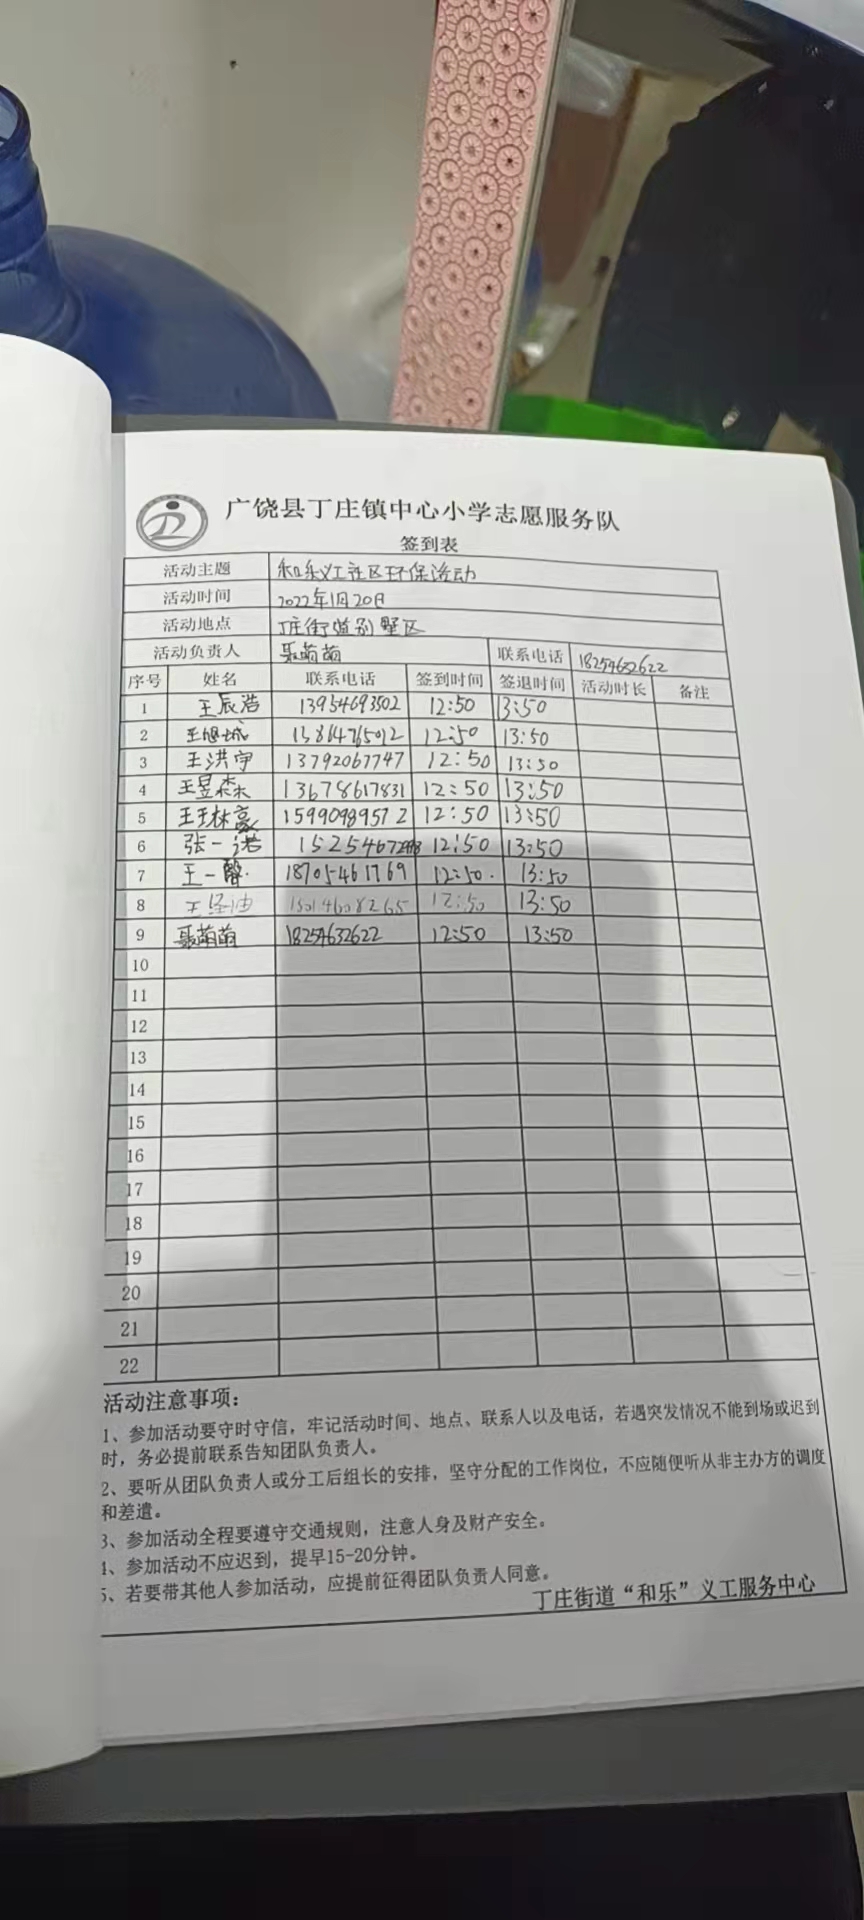 广饶县丁庄镇中心小学志愿服务队
签到表
活动主题 和乐义工社区环保活动
活动时间 2022年1月20日
活动地点 丁庄街道别墅区
活动负责人 聂萌萌 联系电话 18254632622
序号 姓名 联系电话 签到时间 签退时间 活动时长 备注
1 王辰浩 13954693502 12:50 13:50
2 13864765012 12:50 13:50
3 王洪宇 13792067747 12:50 13:50
4 王昱森 13678617831 12:50 13:50
5 王玉林豪 15990989572 12:50 13:50
6 张一诺 12:50 13:50
7 王一馨 18705461769 12:50 13:50
8 15014608265 12:50 13:50
9 聂萌萌 18254632622 12:50 13:50
10
11
12
13
14
15
16
17
18
19
20
21
22
活动注意事项：
1、参加活动要守时守信，牢记活动时间、地点、联系人以及电话，若遇突发情况不能到场或迟到
时，务必提前联系告知团队负责人。
2、要听从团队负责人或分工后组长的安排，坚守分配的工作岗位，不应随便听从非主办方的调度
和差遣。
3、参加活动全程要遵守交通规则，注意人身及财产安全。
4、参加活动不应迟到，提早15-20分钟。
5、若要带其他人参加活动，应提前征得团队负责人同意。
丁庄街道“和乐”义工服务中心